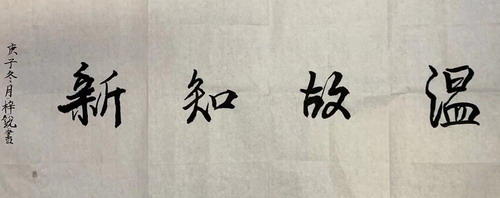 温故知新
庚子冬月梓銳書